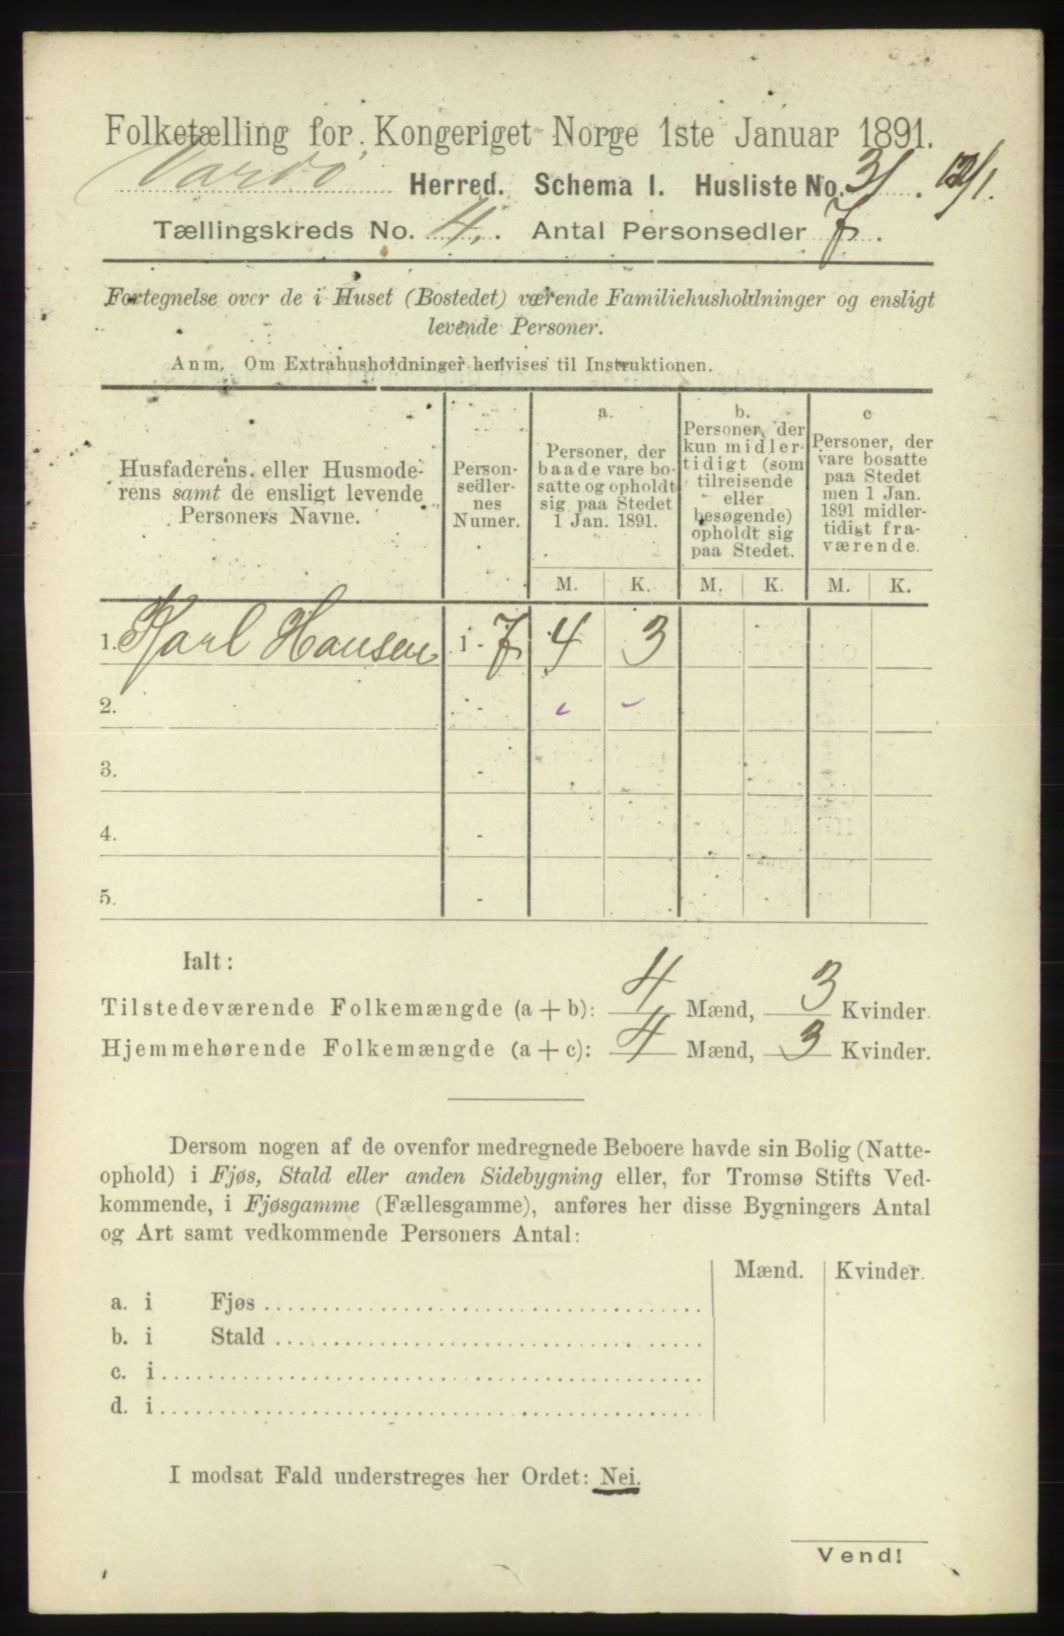 Folketælling for Kongeriget Norge 1ste Januar 1891.
Vardø Herred. Schema I. Husliste No. 31. 12/1.
Tællingskreds No. 4. Antal Personsedler 7.
Fortegnelse over de i Huset (Bostedet) værende Familiehusholdninger og ensligt
levende Personer.
Anm. Om Extrahusholdninger henvises til Instruktionen.
Husfaderens eller Husmode-
rens samt de ensligt levende
Personers Navne.
Person-
sedler-
nes
Numer.
a.
Personer, der
baade vare bo-
satte og opholdt
sig paa Stedet
1 Jan. 1891.
b.
Personer, der
kun midler-
tidigt (som
tilreisende
eller
besøgende)
opholdt sig
paa Stedet.
c
Personer, der
vare bosatte
paa Stedet
men 1 Jan.
1891 midler-
tidigt fra-
værende.
M. K. M. K. M. K.
1. Karl Hansen 1 - 7 4 3
2. -
3. -
4. -
5. -
Ialt:
Tilstedeværende Folkemængde (a + b): 4 Mænd, 3 Kvinder.
Hjemmehørende Folkemængde (a + c): 4 Mænd, 3 Kvinder.
Dersom nogen af de ovenfor medregnede Beboere havde sin Bolig (Natte-
ophold) i Fjøs, Stald eller anden Sidebygning eller, for Tromsø Stifts Ved-
kommende, i Fjøsgamme (Fællesgamme), anføres her disse Bygningers Antal
og Art samt vedkommende Personers Antal:
Mænd. Kvinder.
a. i Fjøs
b. i Stald
c. i
d. i
I modsat Fald understreges her Ordet: Nei.
Vend!